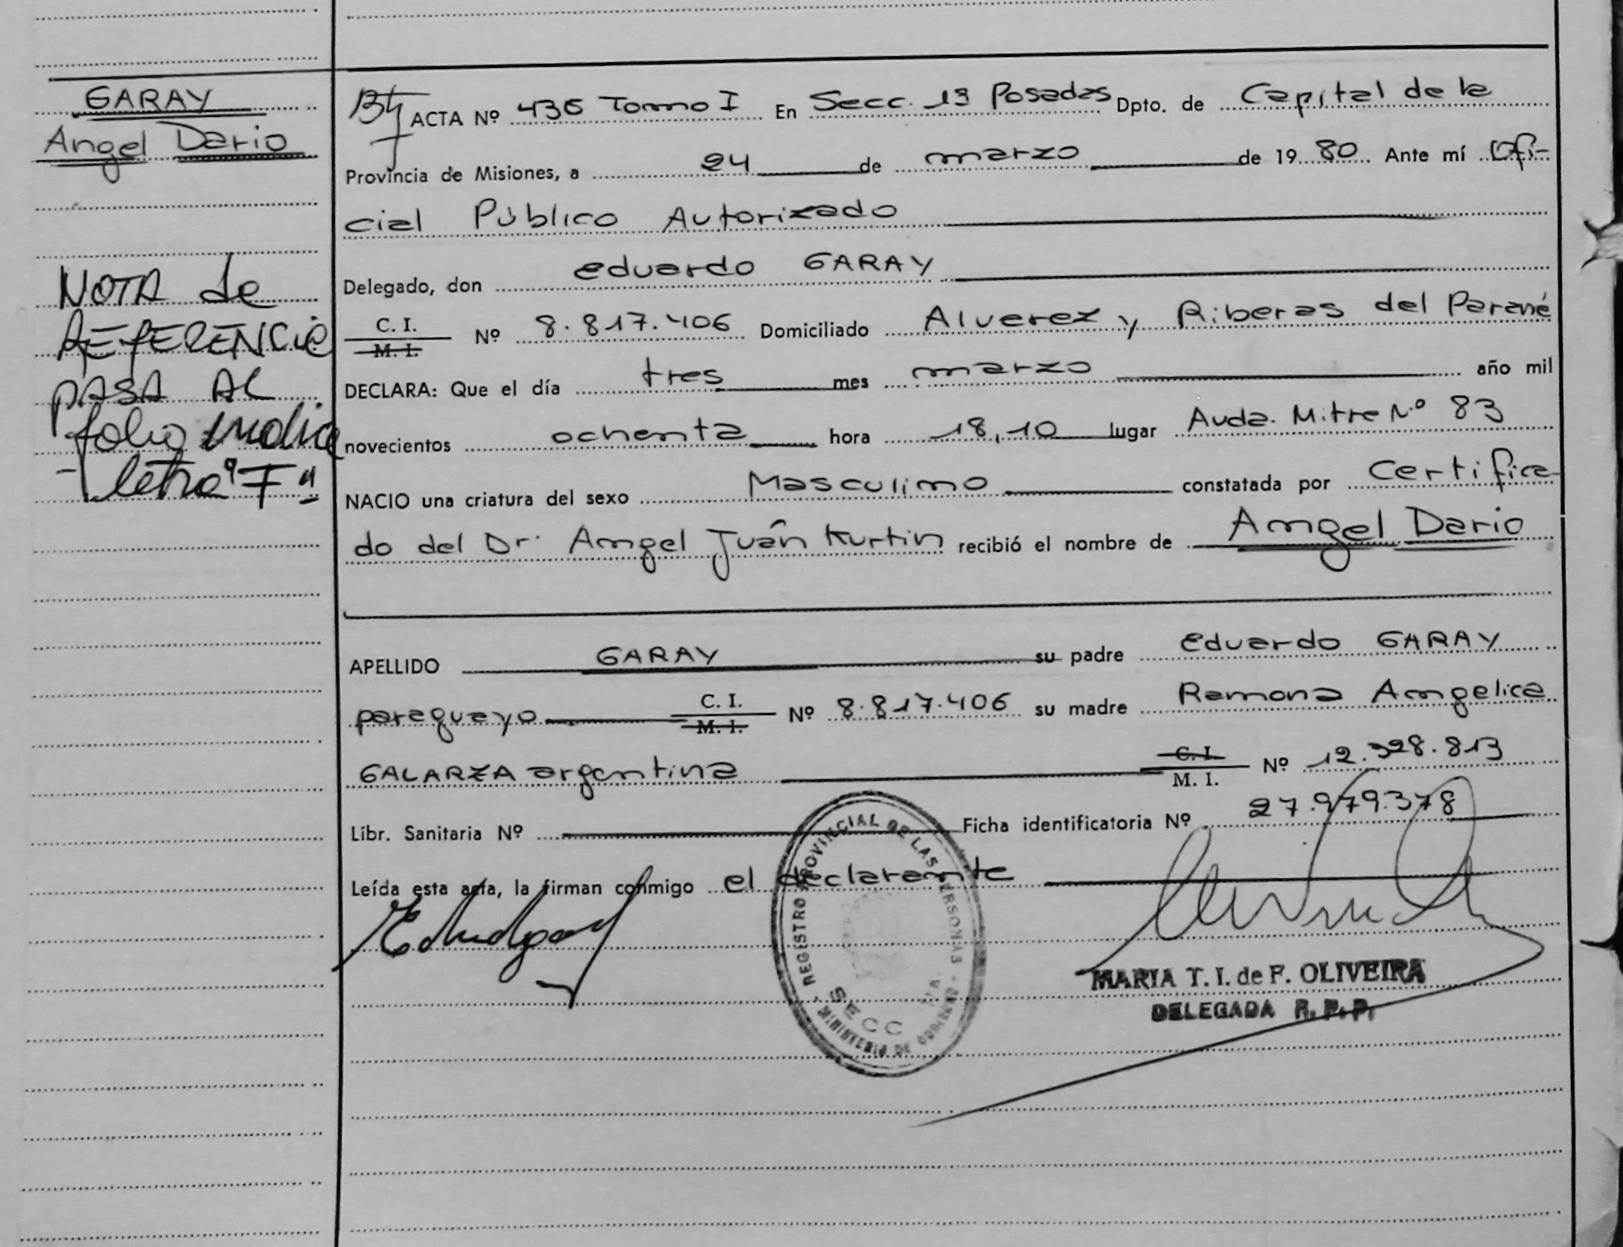 GARAY
Angel Dario
NOTA de
REFERENCIA
PASA AL
folio indice
letra "F"
ACTA Nº 436 Tomo I En Secc. 13 Posadas Dpto. de Capital de la
Provincia de Misiones, a 24 de marzo de 1980 Ante mí Ofi-
cial Público Autorizado
Delegado, don eduardo GARAY
C. I.
M. I. Nº 8.817.406 Domiciliado Alverez y Riberas del Paraná
DECLARA: Que el día tres mes marzo año mil
novecientos ochenta hora 18,10 lugar Avda. Mitre Nº 83
NACIO una criatura del sexo Masculino constatada por Certifica-
do del Dr. Angel Juán Kurtin recibió el nombre de Angel Dario
APELLIDO GARAY su padre eduardo GARAY
paraguayo C. I.
M. I. Nº 8.817.406 su madre Ramona Angelica
GALARZA argentina C. I.
M. I. Nº 12.328.813
Libr. Sanitaria Nº Ficha identificatoria Nº 27.979.378
Leída esta acta, la firman conmigo el declarante
REGISTRO PROVINCIAL DE LAS PERSONAS
SECC
MINISTERIO DE GOBIERNO
MARIA T. I. de F. OLIVEIRA
DELEGADA R. P. P.